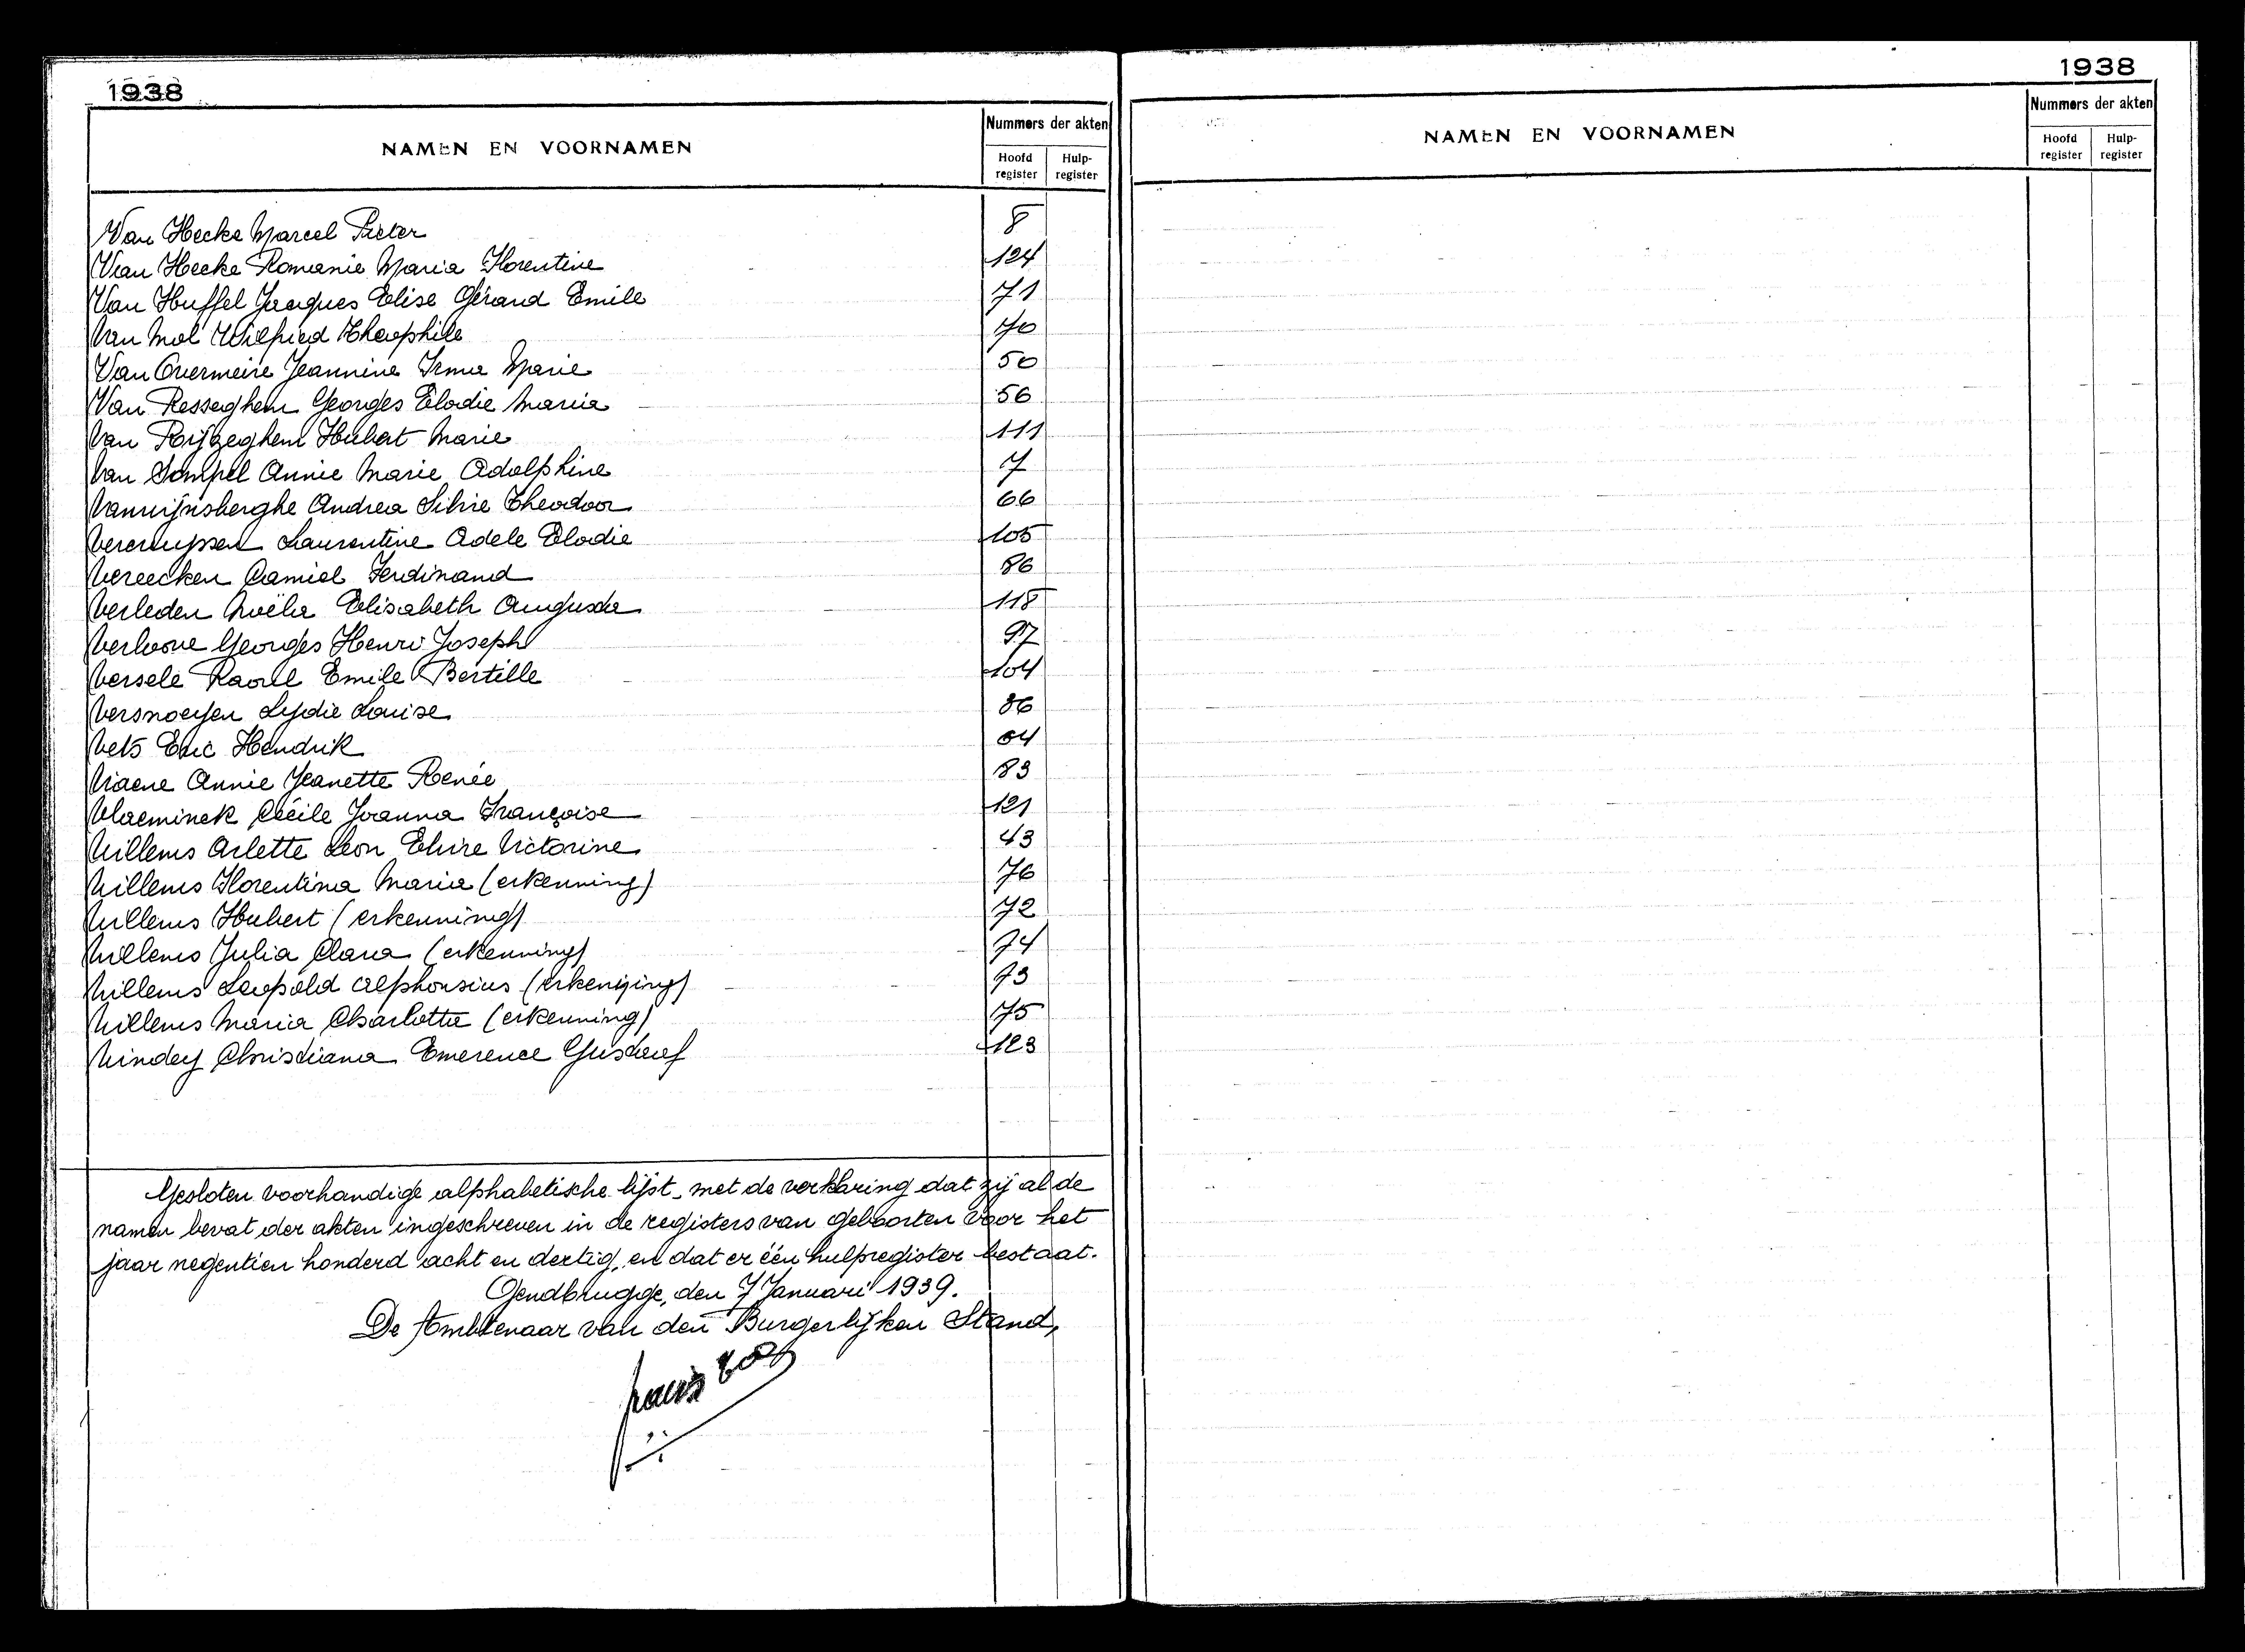 1938
NAMEN EN VOORNAMEN
Nummers der akten
Hoofd register
Hulp-register
Van Hecke Marcel Pieter 8
Van Hecke Romanie Maria Florentine 124
Van Huffel Jacques Elise Gérard Emile 71
Van Mol Wilfried Theophile 70
Van Overmeire Jeannine Irma Marie 50
Van Resseghem Georges Elodie Maria 56
Van Rijzeghem Hubert Marie 111
Van Sompel Annie Marie Adolphine 7
Vanwijnsberghe Andrea Silvie Theodoor 66
Vercruyssen Laurentine Adele Elodie 105
Vereecken Camiel Ferdinand 86
Verleden Noëlla Elisabeth Augusta 118
Georges Henri Joseph 97
Versele Raoul Emile Bertille 104
Versnoeyen Lydie Louise 36
Vets Eric Hendrik 64
Viaene Annie Jeanette Renée 83
Vlaeminck Cécile Joanna Françoise 121
Willems Arlette Leon Elvire Victorine 43
Willems Florentina Maria (erkenning) 76
Willems Hubert (erkenning) 72
Willems Julia Clara (erkenning) 74
Willems Leopold Alphonsius (erkenning) 73
Willems Maria Charlotta (erkenning) 75
Windey Christiana Emerence Gustaaf 123
Gesloten voorhandige alphabetische lijst, met de verklaring dat zij al de
namen bevat der akten ingeschreven in de registers van geboorten voor het
jaar negentien honderd acht en dertig, en dat er één hulpregister bestaat.
Gendbrugge, den 7 Januari 1939.
De Ambtenaar van den Burgerlijken Stand,
1938
NAMEN EN VOORNAMEN
Nummers der akten
Hoofd register
Hulp-register